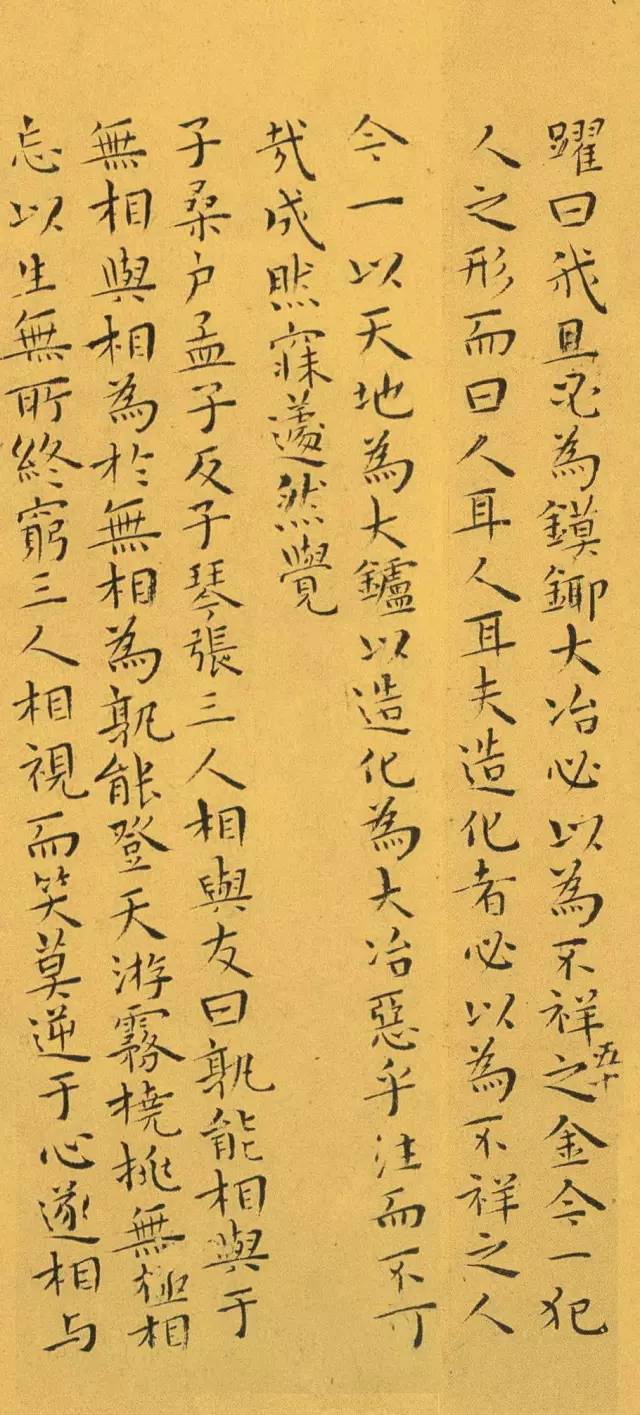 躍曰我且必為鏌鋣大冶必以為不祥之金今一犯
五十
人之形而曰人耳人耳夫造化者必以為不祥之人
今一以天地為大鑪以造化為大冶惡乎注而不可
哉成然寐蘧然覺
子桑户孟子反子琴張三人相與友曰孰能相與于
無相與相為於無相為孰能登天游霧橈挑無極相
忘以生無所終窮三人相視而笑莫逆于心遂相与